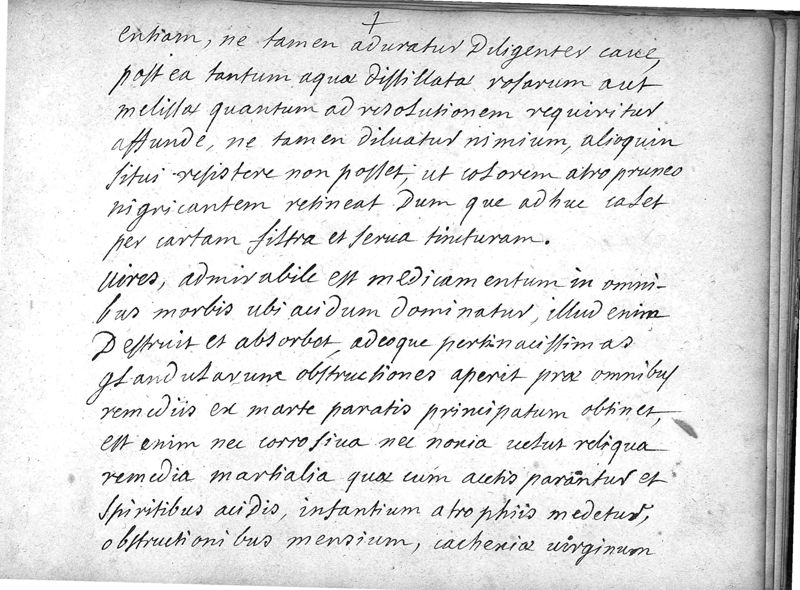 entiam, ne tamen aduratur Diligenter cave,
postea tantum aquæ distillatæ rosarum aut
melissæ quantum ad resolutionem requiritur
affunde, ne tamen diluatur nimium, alioquin
situi resistere non posset, ut colorem atro pruneo
nigricantem retineat Dum que adhuc calet
per cartam filtra et serua tincturam.
vires, admirabile est medicamentum in omni-
bus morbis ubi acidum dominatur, illud enim
Destruit et absorbet, adeoque pertinacissimas
glandularum obstructiones aperit præ omnibus
remediis ex marte paratis principatum obtinet,
est enim nec corrosiva nec noxia velut reliqua
remedia martialia quæ cum acetis parantur et
spiritibus acidis, infantium atrophiis medetur,
obstructionibus mensium, cachexiæ virginum